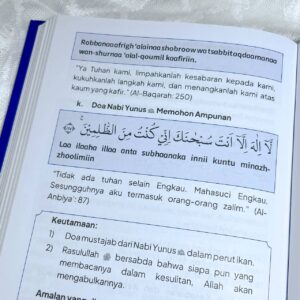 Rabbanaa afrigh 'alainaa shobroow wa tsabbit aqdaamanaa
wan-shurnaa 'alal-qoumil kaafiriin.
"Ya Tuhan kami, limpahkanlah kesabaran kepada kami,
kukuhkanlah langkah kami, dan menangkanlah kami atas
kaum yang kafir." (Al-Baqarah: 250)
k. Doa Nabi Yunus Memohon Ampunan
لَآ اِلٰهَ اِلَّآ اَنْتَ سُبْحٰنَكَ اِنِّيْ كُنْتُ مِنَ الظّٰلِمِيْنَ
Laa ilaaha illaa anta subhaanaka innii kuntu minazh-
zhoolimiin
"Tidak ada tuhan selain Engkau. Mahasuci Engkau.
Sesungguhnya aku termasuk orang-orang zalim." (Al-
Anbiya': 87)
Keutamaan:
1) Doa mustajab dari Nabi Yunus dalam perut ikan.
2) Rasulullah ﷺ bersabda bahwa siapa pun yang
membacanya dalam kesulitan, Allah akan
mengabulkannya.
Amalan yang